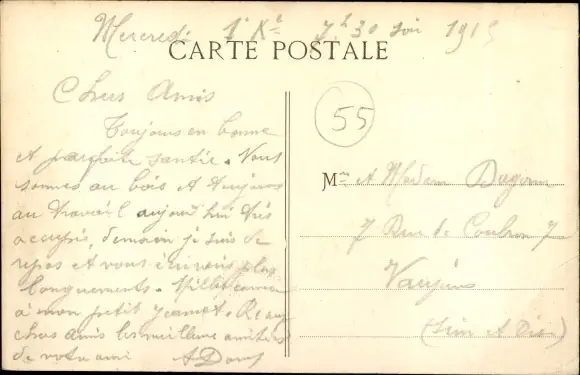 Mercredi 1er Xbre 7h 30 soir 1915
CARTE POSTALE
Chers Amis
Toujours en bonne
et parfaite santé. Nous
sommes au bois et toujours
au travail aujourd'hui très
occupés, demain je suis de
repos et vous écrirais plus
longuements. Mille
à mon petit Jeannot. Re
chers amis les meilleures amitiés
de votre ami A
55
Mme et Madame
7 Rue de 7
Vaujours
(Sein et Oise)